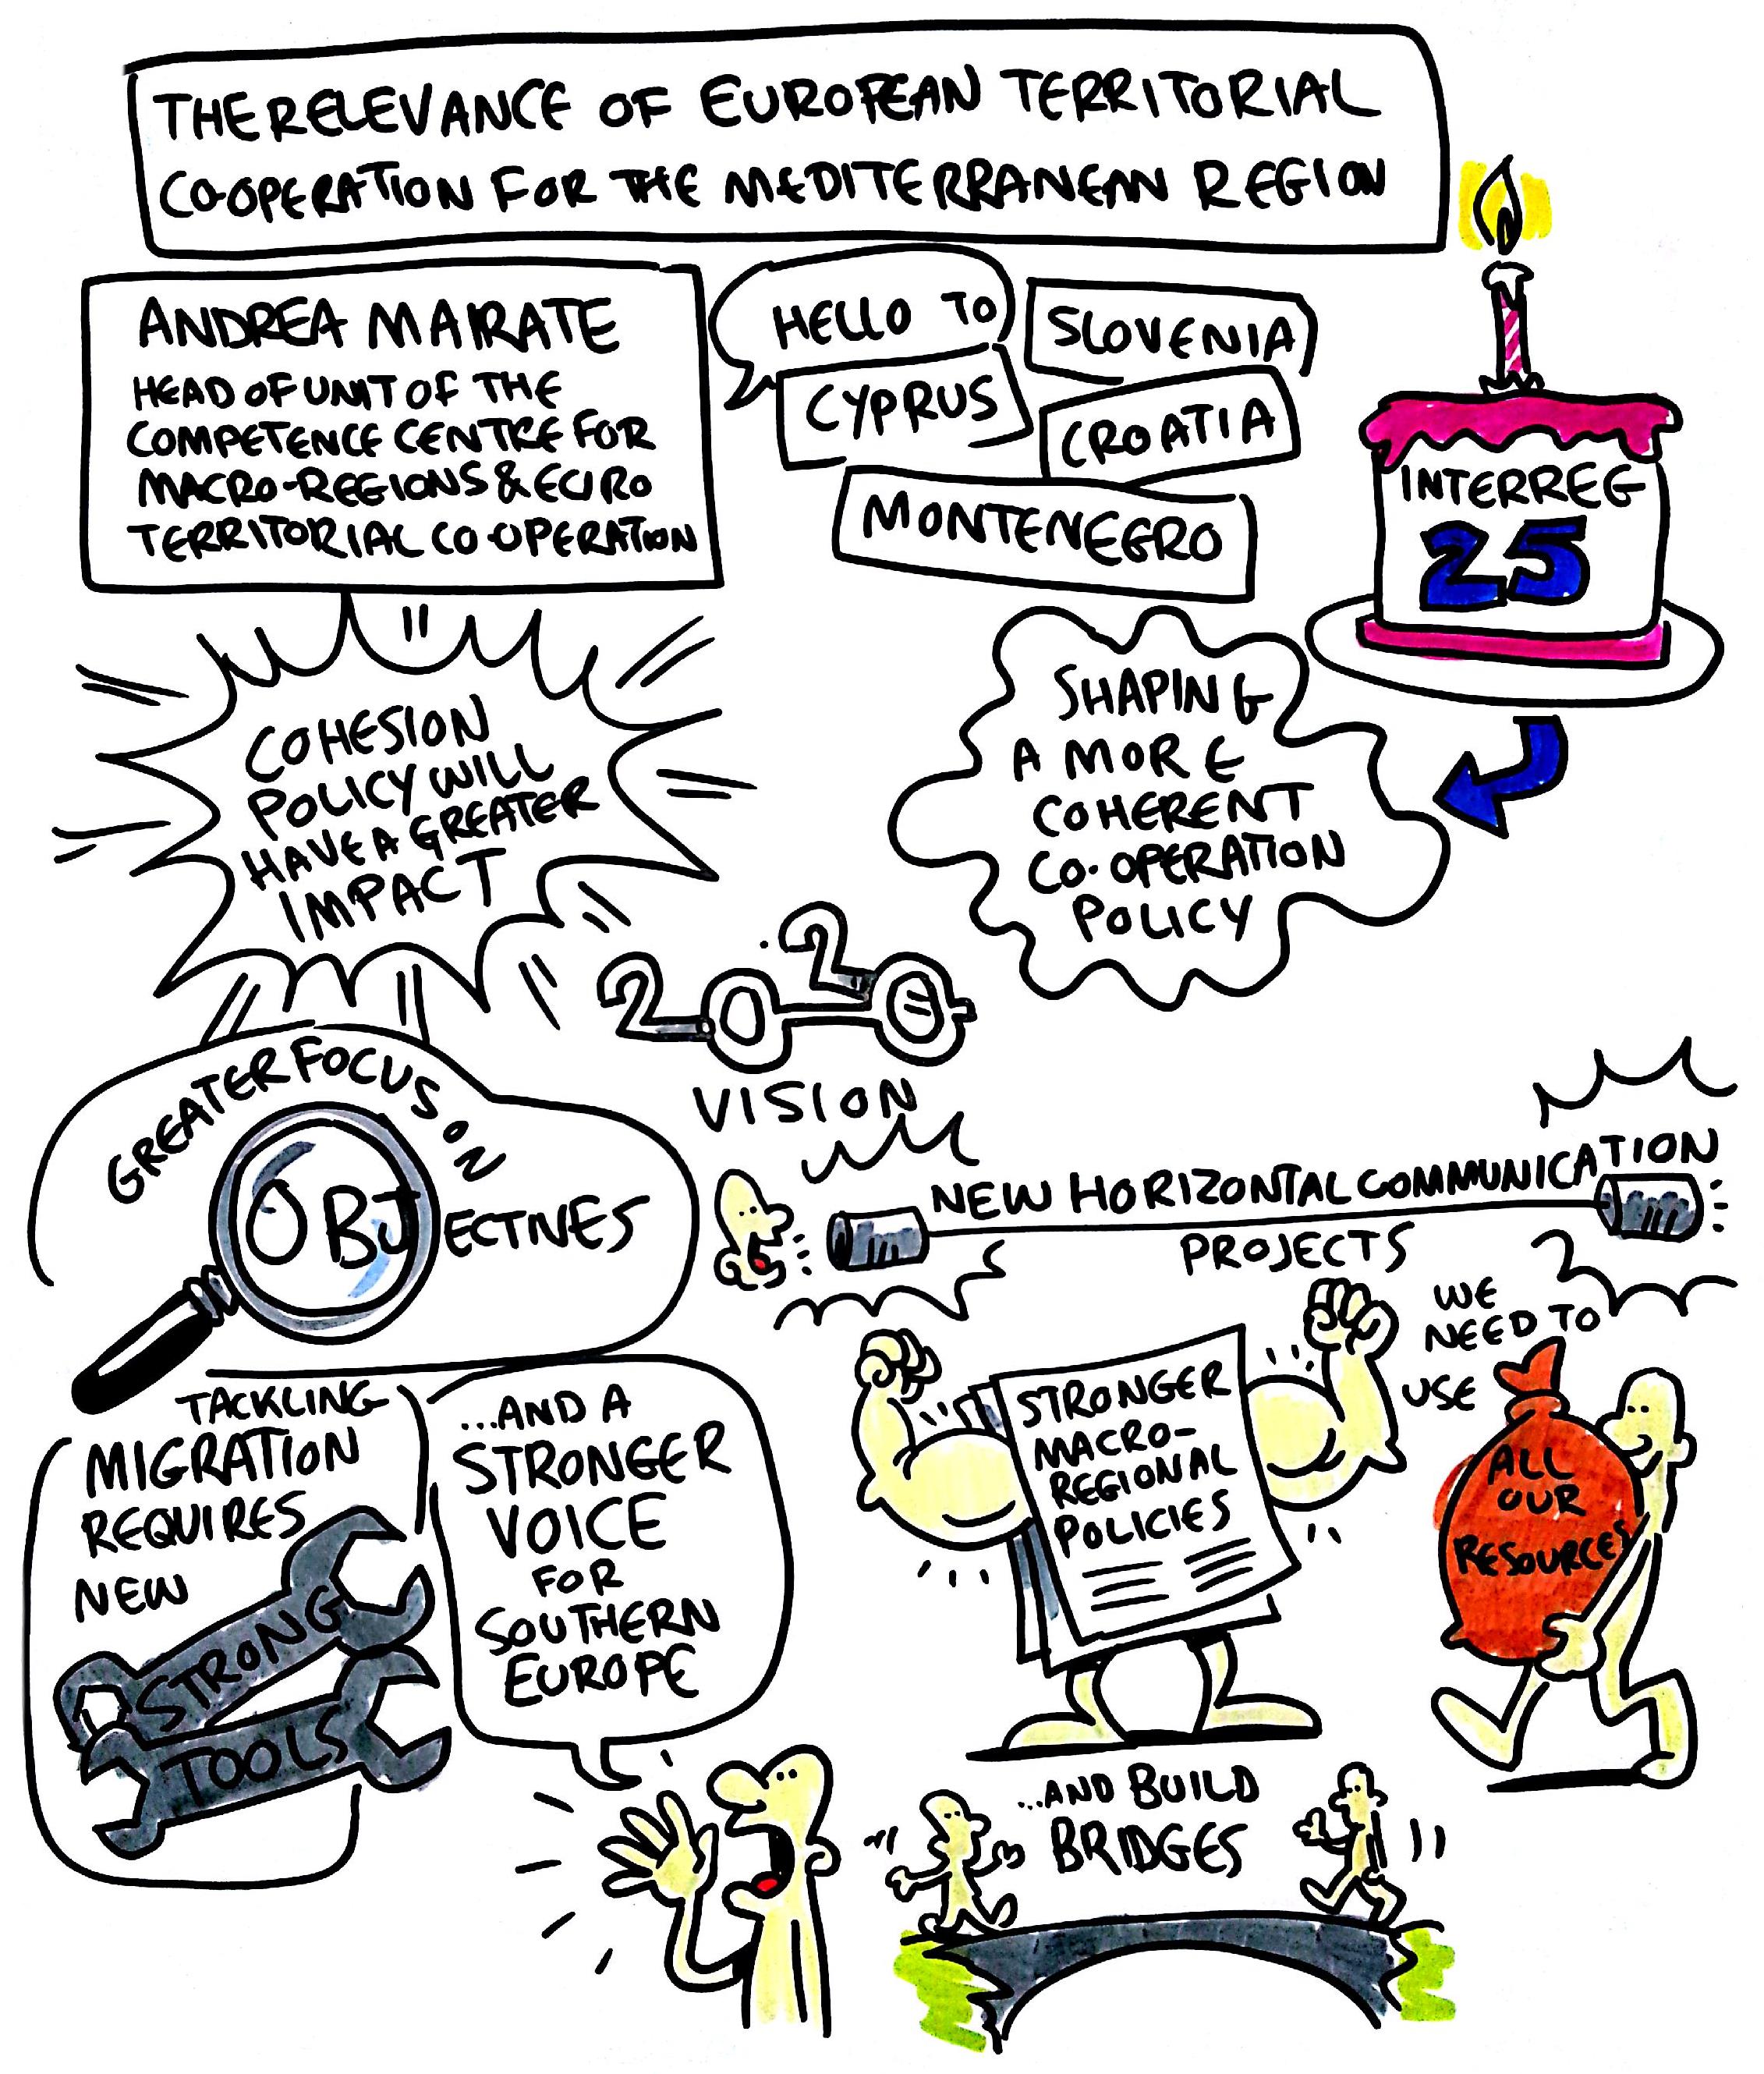 THE RELEVANCE OF EUROPEAN TERRITORIAL
CO-OPERATION FOR THE MEDITERRANEAN REGION
ANDREA MAIRATE
HEAD OF UNIT OF THE
COMPETENCE CENTRE FOR
MACRO-REGIONS & EURO
TERRITORIAL CO-OPERATION
HELLO TO
SLOVENIA
CYPRUS
CROATIA
MONTENEGRO
INTERREG
25
SHAPING
A MORE
COHERENT
CO-OPERATION
POLICY
COHESION
POLICY WILL
HAVE A GREATER
IMPACT
2020
VISION
GREATER FOCUS ON
OBJECTIVES
NEW HORIZONTAL COMMUNICATION
PROJECTS
TACKLING
MIGRATION
REQUIRES
NEW
STRONG
TOOLS
...AND A
STRONGER
VOICE
FOR
SOUTHERN
EUROPE
STRONGER
MACRO-
REGIONAL
POLICIES
WE
NEED TO
USE
ALL
OUR
RESOURCES
...AND BUILD
BRIDGES